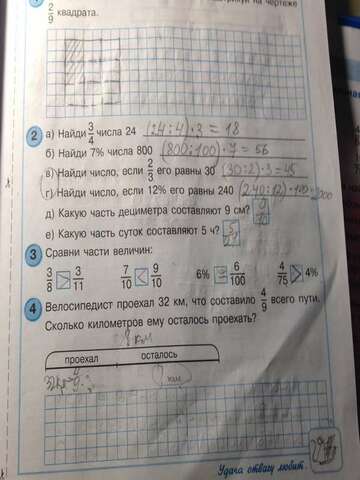 на чертеже
2/9 квадрата.
2 а) Найди 3/4 числа 24 (24:4)·3 = 18
б) Найди 7% числа 800 (800:100)·7 = 56
в) Найди число, если 2/3 его равны 30 (30:2)·3=45
г) Найди число, если 12% его равны 240 (240:12)·100=2000
д) Какую часть дециметра составляют 9 см? 9/10
е) Какую часть суток составляют 5 ч? 5/24
3 Сравни части величин:
3/8 > 3/11 7/10 < 9/10 6% = 6/100 4/75 > 4%
4 Велосипедист проехал 32 км, что составило 4/9 всего пути.
Сколько километров ему осталось проехать?
км
проехал осталось
32км 4/9 ? км
Удача отвагу любит.